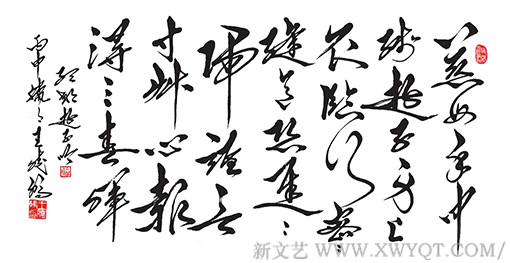 慈母手中
线遊子身上
衣临行密〻
缝意恐遲〻
歸谁言
寸艸心報
得三春晖
孟郊遊子吟
丙申
新文艺/WWW.XWYQT.COM/